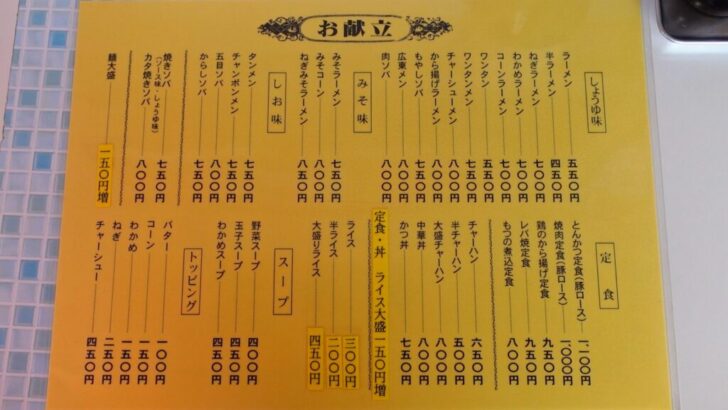 お献立
しょうゆ味
ラーメン 五五〇円
半ラーメン 四五〇円
ねぎラーメン 八〇〇円
わかめラーメン 七五〇円
コーンラーメン 七五〇円
ワンタン 五五〇円
ワンタンメン 七五〇円
チャーシューメン 八〇〇円
から揚げラーメン 八〇〇円
もやしソバ 七五〇円
広東メン 八〇〇円
肉ソバ 八〇〇円
みそ味
みそラーメン 七五〇円
みそコーン 八〇〇円
ねぎみそラーメン 八五〇円
しお味
タンメン 七五〇円
チャンポンメン 七五〇円
五目ソバ 八〇〇円
からしソバ 七五〇円
焼きソバ 七五〇円
(ソース味・しょうゆ味)
カタ焼きソバ 八〇〇円
麺大盛 一五〇円増
定食
とんかつ定食(豚ロース) 一、一〇〇円
焼肉定食(豚ロース) 一、〇〇〇円
鶏のから揚げ定食 九五〇円
レバ焼定食 九五〇円
もつの煮込定食 八〇〇円
チャーハン 六五〇円
半チャーハン 五五〇円
大盛チャーハン 八〇〇円
中華丼 八〇〇円
かつ丼 七五〇円
定食・丼 ライス大盛一五〇円増
ライス 三〇〇円
半ライス 二〇〇円
大盛りライス 四五〇円
スープ
野菜スープ 四〇〇円
玉子スープ 四五〇円
わかめスープ 四五〇円
トッピング
バター 一〇〇円
コーン 一五〇円
わかめ 一五〇円
ねぎ 二五〇円
チャーシュー 四五〇円